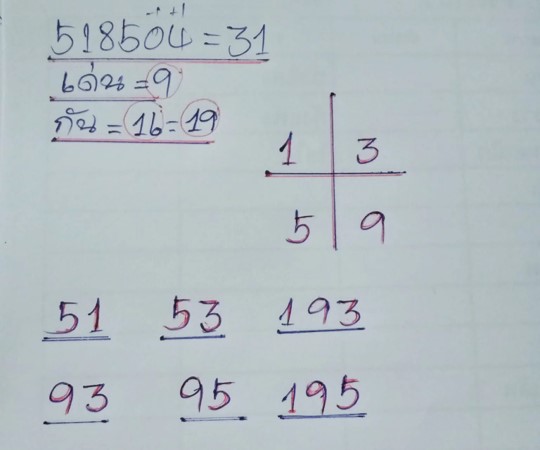 -1 +1
518504 = 31
เด่น = 9
กัน = 16 = 19
1 3
5 9
51 53 193
93 95 195